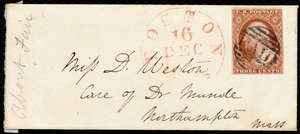 About Fair
BOSTON
16
DEC
U.S. POSTAGE
THREE CENTS
Miss D. Weston
Care of Dr Munde
Northampton
Mass